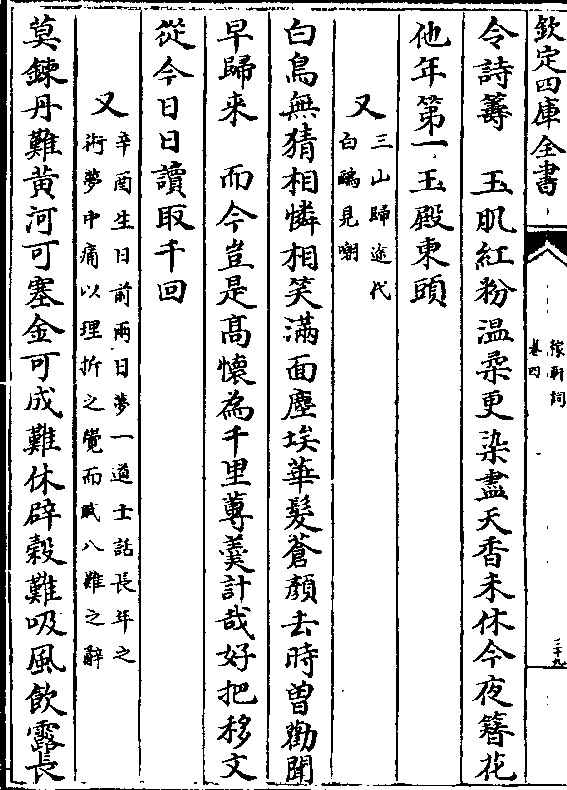 欽定四庫全書
稼軒詞
卷四
三十九
令詩籌　玉肌紅粉温柔更染盡天香未休今夜簪花
他年第一玉殿東頭
又
三山歸途代
白鷗見嘲
白鳥無猜相憐相笑滿面塵埃華髮蒼顔去時曽勸聞
早歸來　而今豈是髙懐為千里蓴羮計哉好把移文
從今日日讀取千回
又
辛酉生日前兩日夢一道士話長年之
術夢中痛以理折之覺而賦八難之辭
莫鍊丹難黄河可塞金可成難休辟榖難吸風飲露長